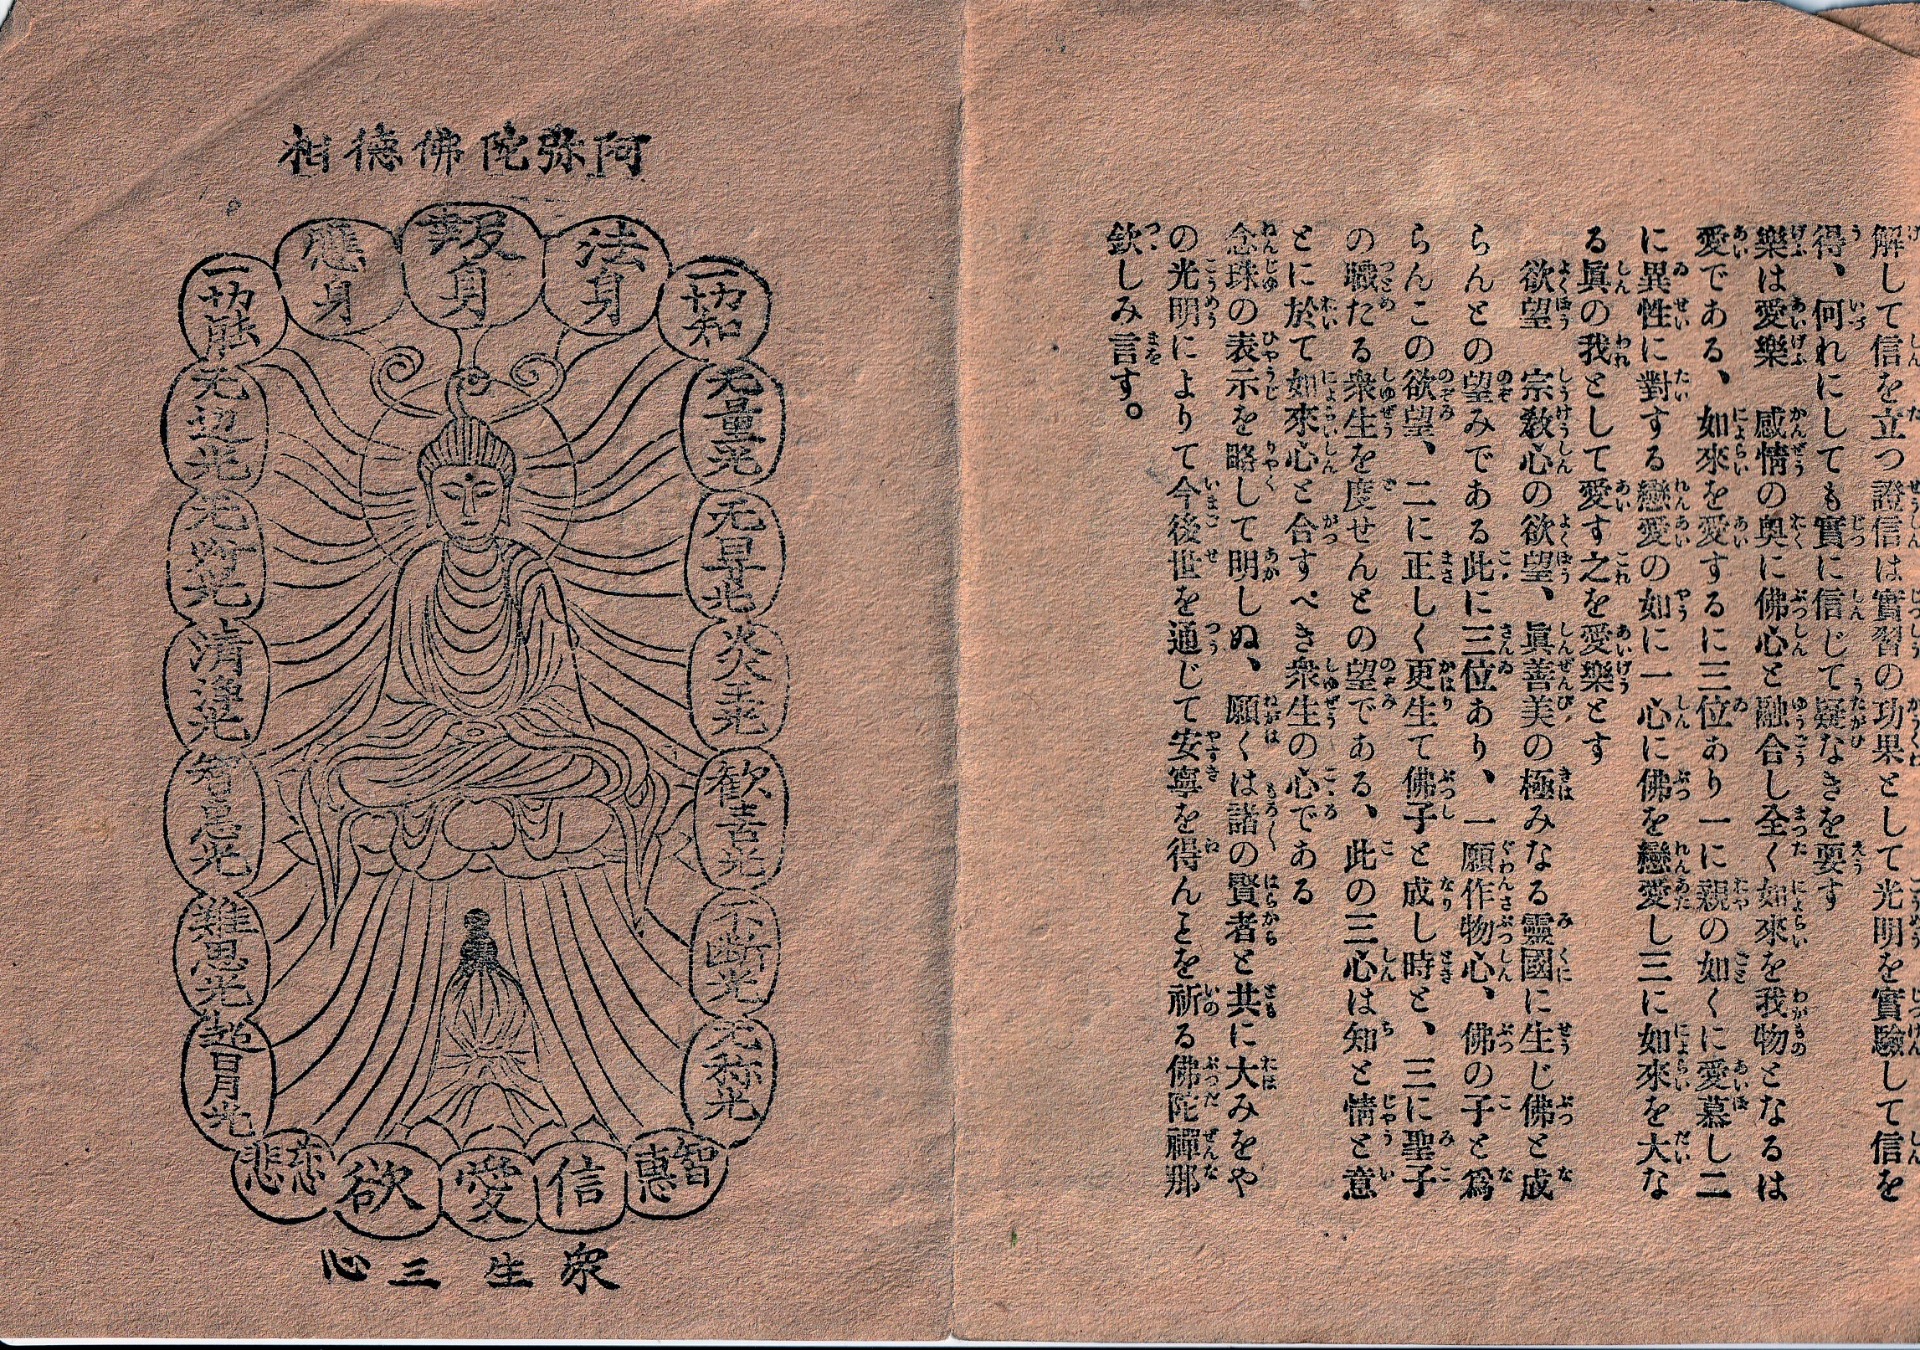 解して信を立つ證信は實習の功果として光明を實驗して信を
得、何れにしても實に信じて疑なきを要す
樂は愛樂　感情の奥に佛心と融合し全く如來を我物となるは
愛である、如來を愛するに三位あり一に親の如くに愛慕し二
に異性に對する戀愛の如に一心に佛を戀愛し三に如來を大な
る眞の我として愛す之を愛樂とす
欲望　宗教心の欲望、眞善美の極みなる靈國に生じ佛と成
らんとの望みである此に三位あり、一願作物心、佛の子と爲
らんこの欲望、二に正しく更生て佛子と成し時と、三に聖子
の職たる衆生を度せんとの望である、此の三心は知と情と意
とに於て如來心と合すべき衆生の心である
念珠の表示を略して明しぬ、願くは諸の賢者と共に大みをや
の光明によりて今後世を通じて安寧を得んとを祈る佛陀禪那
欽しみ言す。
阿弥陀佛德相
法身
報身
應身
一切知
一切能
无量光
无辺光
无㝵光
无対光
炎王光
清浄光
歓喜光
智恵光
不断光
難思光
无称光
超日月光
智惠
信
愛
欲
慈悲
衆生三心